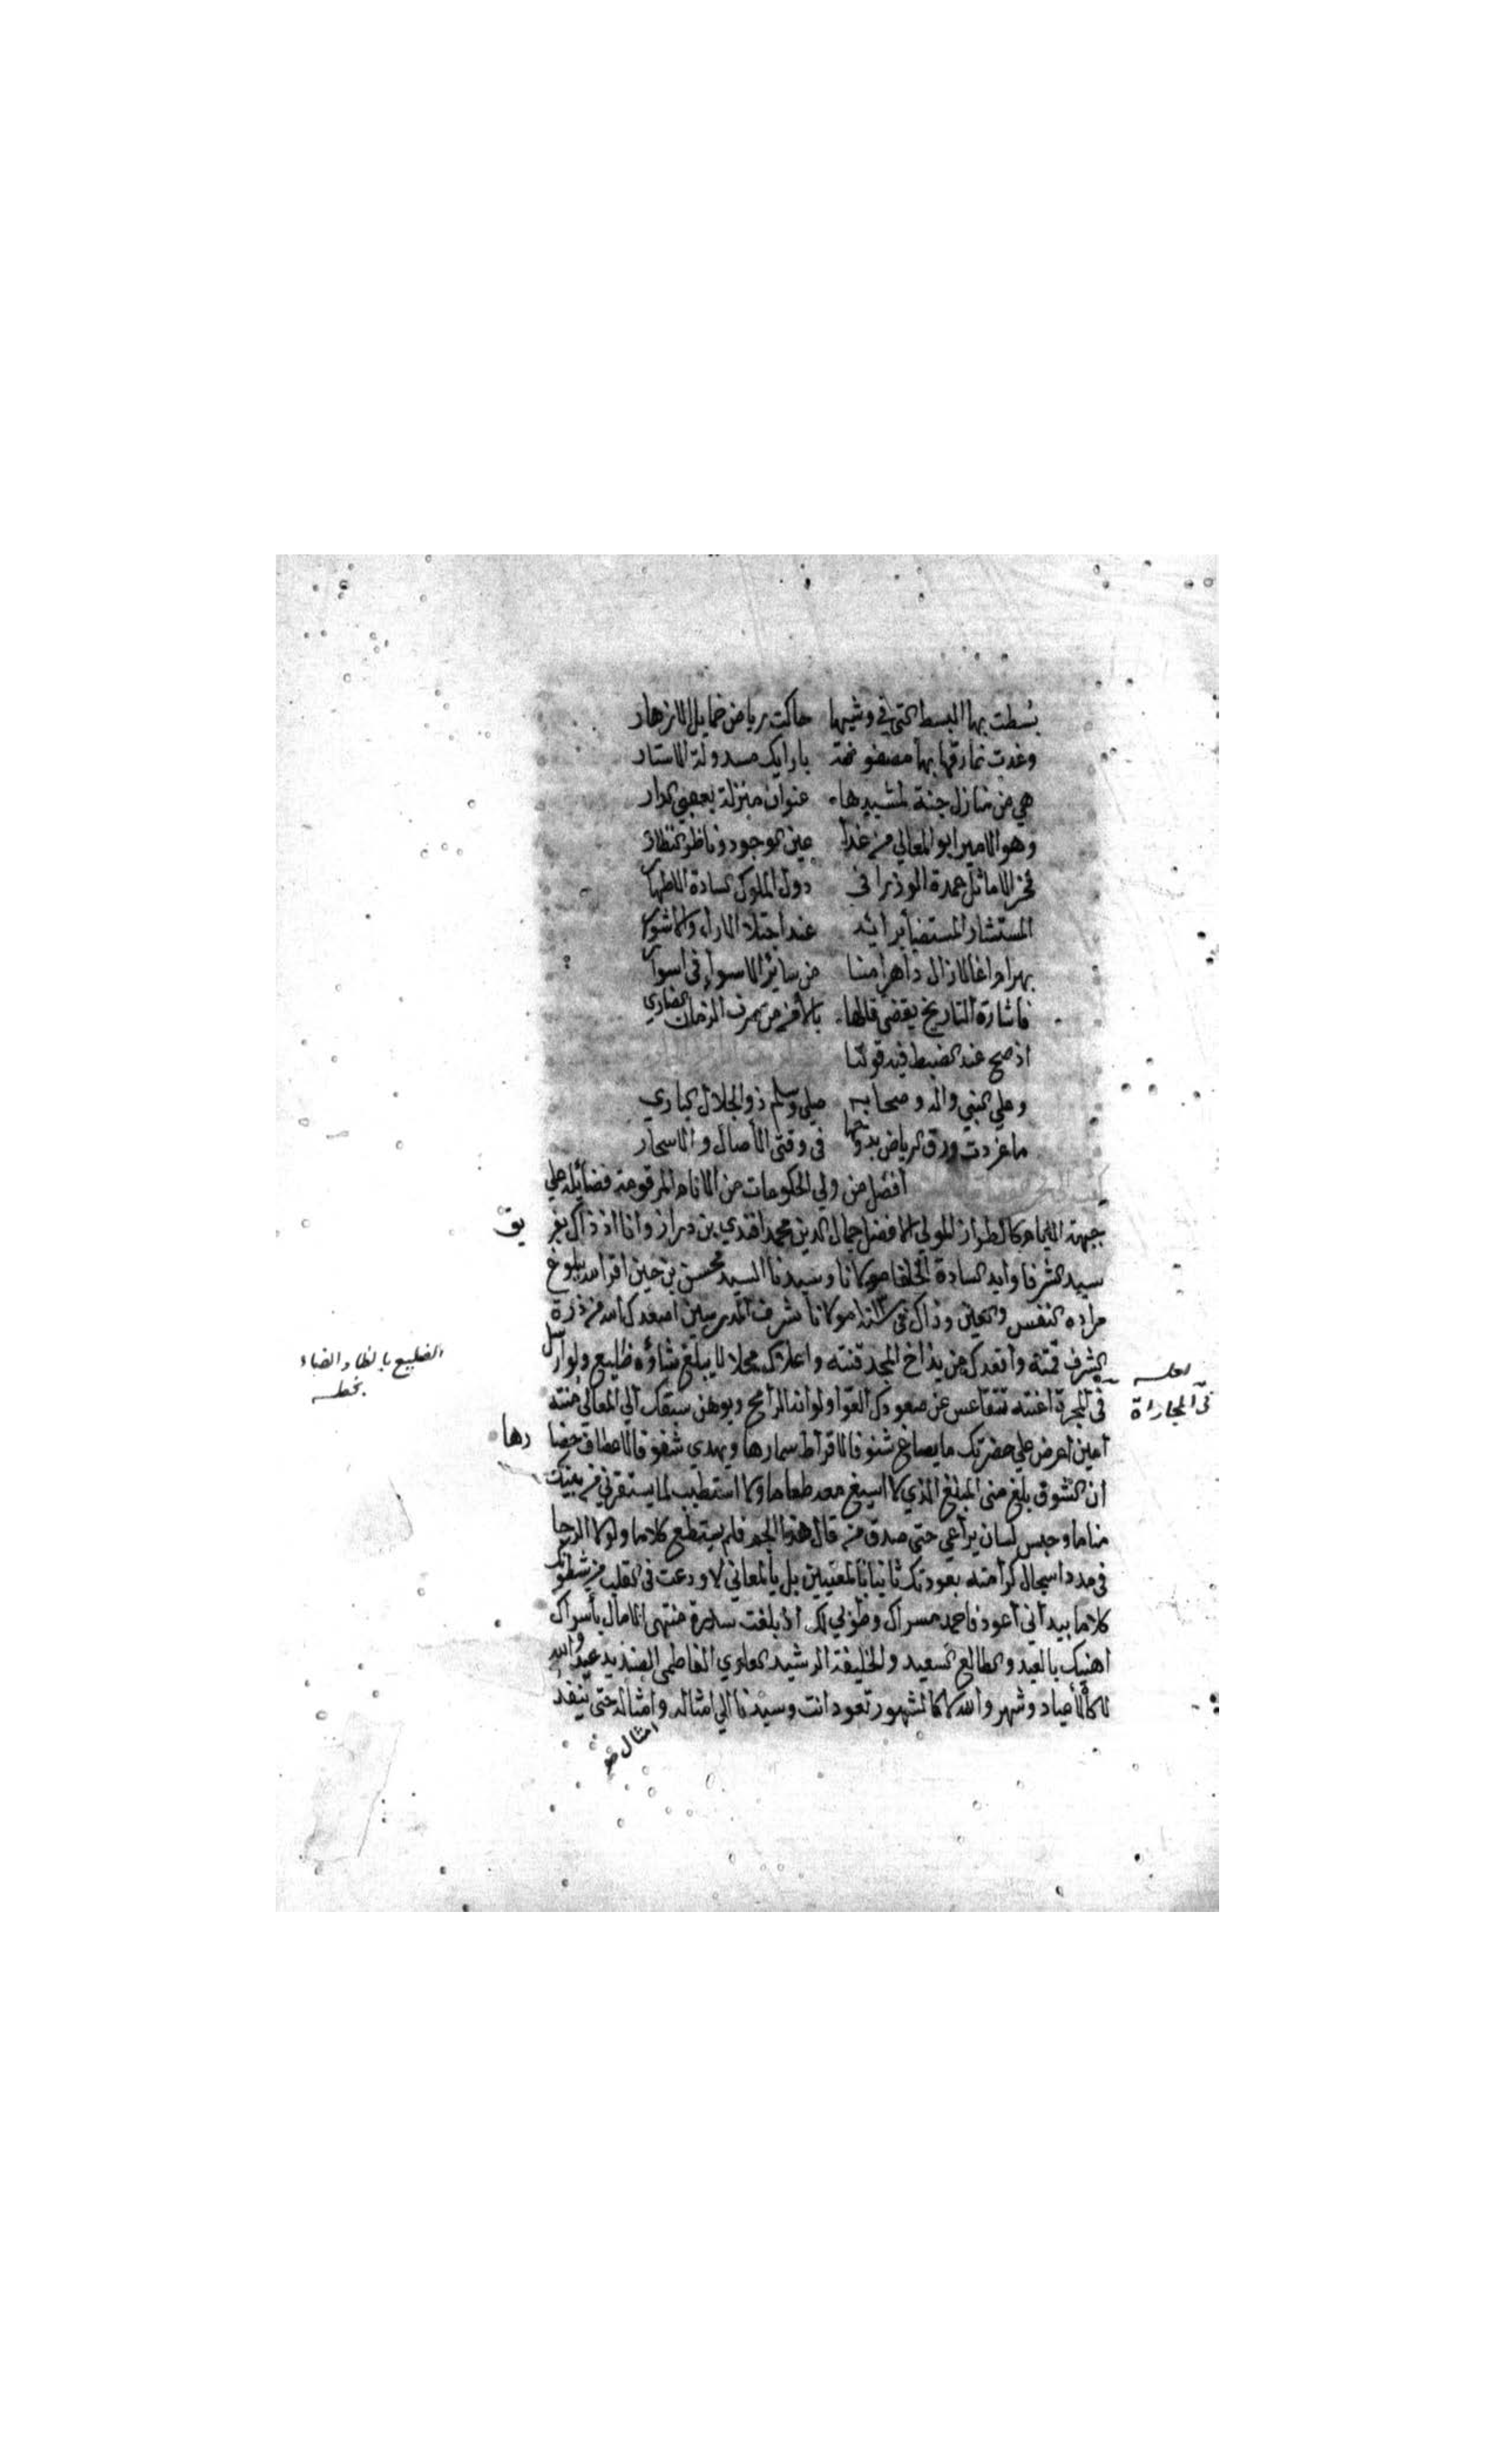 بسطت بها البسط التي في وشيها حاكت رياض خمايل الازهار
وغدت نمارقها بها مصفوفة بارايك مسدولة الاستار
هي من منازل جنة لمشيدها عنوان منزلة بعقبى الدار
وهو الامير ابو المعالي من غدا عين الوجود وناظر النظار
فخر الاماثل عمدة الوزرا في دول الملوك السادة الاطهار
المستشار المستضأ برائه عند اجتلا الاراء والاشوار
بهرام اغا لازال دامرا منا من سائر الاسواء في اسوار
فاشارة التاريخ يقضي فالها بالأمن من صرف الزمان الضاري
اذ صح عند الضبط فيه قولنا
وعلي النبي واله وصحابه صلي وسلم ذو الجلال الباري
ما غردت ورق الرياض بدوحها في وقتي الأصال والاسحار
أفضل من ولي الحكومات من الانام المرقومة فضائله علي
جبهة الايام كالطراز المولي الافضل جمال الدين محمد افندي بن دراز وانا اذ ذاك بفر
يق
سيد الشرفا وايد السادة الخلفا مولانا وسيدنا السيد محسن بن حسين اقر الله ببلوغ
مراده النفس والعين وذاك في مولانا شرف المدرسين اصعدك الله من ذروة
الشرف قمته واقعدك من بذاخ المجد قنته واعلاك محلا لا يبلغ شاؤه ظليع ولو ارسل
الضليع بالظا والضاد
بخطه
لعله
في المجاراة
في المجرة اعنته تتقاعس عن صعودك القوا ولو انه الرامح ويوهن سبقك الي المعالي منته
امين اعرض علي حضرتك ما يصاغ شنوفا للاقراط سمارها ويهدي شفوفا للاعطاف خضا
رها
ان الشوق بلغ مني المبلغ الذي لا اسيغ معه طعاما ولا استطيب لما يستفزني من بينك
مناما وحبس لسان يراعي حتى صدق من قال هذا الجد فلم يستطع كلاما ولولا الرجا
في مدد اسجال كرامته بعودتك ثانيا بالمعنيين بل بالمعاني لاودعت في القلب من شطونك
كلاما بيد اني اعود فاحمد مسراك وطوبي لك اذ بلغت سدرة منتهى الامال بأسراك
اهنيك بالعيد والطالع السعيد والخليفة الرشيد العلوي الفاطمي الصنديد عيد والله
لا كالأعياد وشهر والله لا كالشهور تعود انت وسيدنا الي امثاله وامثاله حتى ينفد
امثال